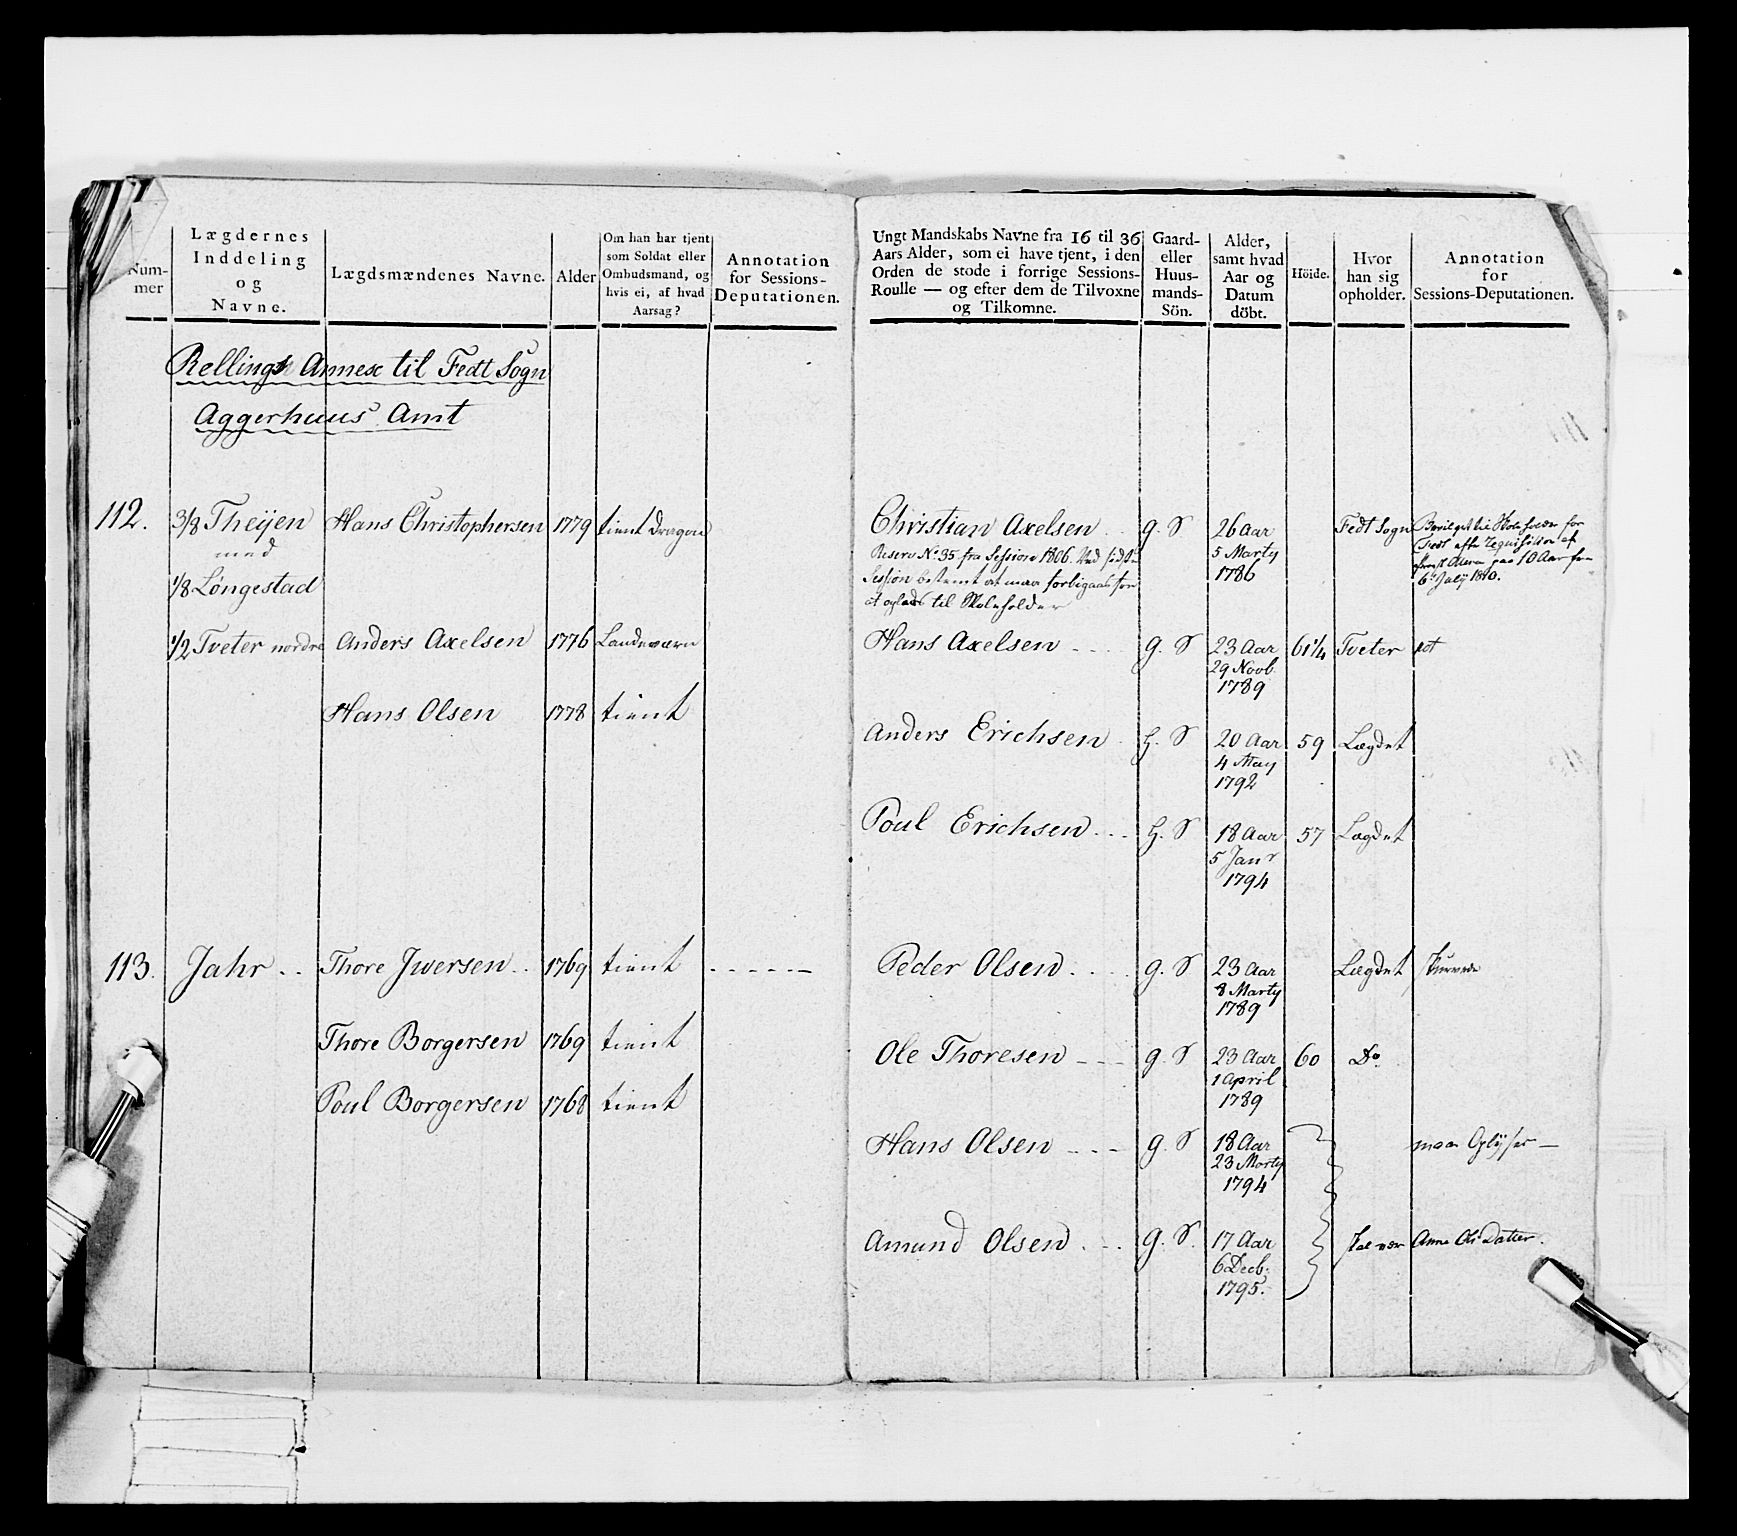 Num-
mer
Lægdernes
Inddeling
og
Navne.
Lægdsmændenes Navne.
Alder
Om han har tjent
som Soldat eller
Ombudsmand, og
hvis ei, af hvad
Aarsag?
Annotation
for Sessions-
Deputationen.
Rellings Annex til Fedt Sogn
Aggerhuus Amt
112. 3/8 Theijen Hans Christophersen 1779 tient Dragon
med
1/8 Løngestad
1/2 Tveter nordre Anders Axelsen 1776 Landeværn
Hans Olsen 1778 tient
113. Jahr .. Thore Jwersen .. 1769 tient
Thore Borgersen 1769 tient
Poul Borgersen 1768 tient
Ungt Mandskabs Navne fra 16 til 36
Aars Alder, som ei have tjent, i den
Orden de stode i forrige Sessions-
Roulle — og efter dem de Tilvoxne
og Tilkomne.
Gaard-
eller
Huus-
mands-
Sön.
Alder,
samt hvad
Aar og
Datum
döbt.
Höide.
Hvor
han sig
opholder.
Annotation
for
Sessions-Deputationen.
Christian Axelsen . . g. S 26 Aar Fedt Sogn
5 Marty
1786
Reserv No. 35 fra Session 1806. Ved sidste
Session bestemt at maa forbigaas for
at oplæres til Skoleholder
til Skoleholder for
Fedt efter Requisition af
paa 10 Aar
6te July 1810.
Hans Axelsen - - - g. S 23 Aar 61 1/4 Tveter
29 Novb.
1789
Anders Erichsen . H. S 20 Aar 59 Lægdet
4 May
1792
Poul Erichsen . . . H. S 18 Aar 57 Lægdet
5 Janr
1794
Peder Olsen . . . . g. S 23 Aar Lægdet
8 Marty
1789
Ole Thoresen - - - g. S 23 Aar 60 Do.
1 April
1789
Hans Olsen - - - g. S 18 Aar maa Oplyses —
23 Marty
1794
Amund Olsen . . . g. S. 17 Aar Anne Ols Datter.
6 Decb.
1795.